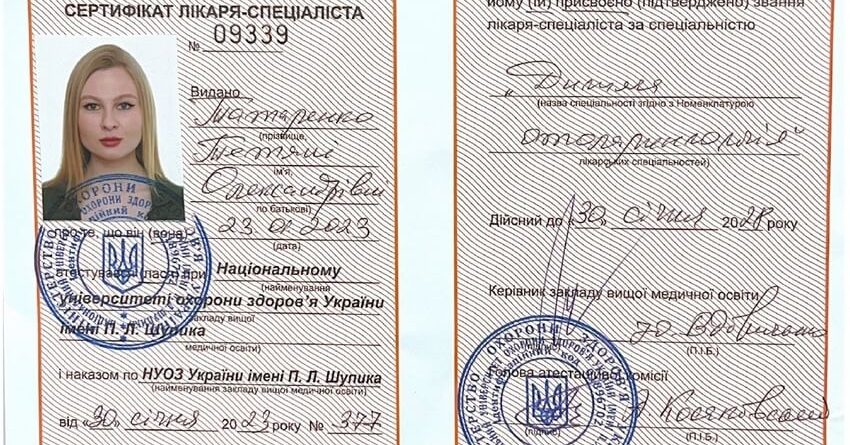 СЕРТИФІКАТ ЛІКАРЯ-СПЕЦІАЛІСТА
№ 09339
Видано
Татаренко
(прізвище,
Тетяні
ім'я,
Олександрівні
по батькові)
23.01.2023
(дата)
про те, що він (вона)
атестувався (лась) при Національному
(найменування
університеті охорони здоров'я України
закладу вищої
імені П. Л. Шупика
медичної освіти)
і наказом по НУОЗ України імені П. Л. Шупика
(найменування закладу вищої медичної освіти)
від «30» січня 2023 року № 377
йому (їй) присвоєно (підтверджено) звання
лікаря-спеціаліста за спеціальністю
„Дитяча
(назва спеціальності згідно з Номенклатурою
отоларингологія"
лікарських спеціальностей)
Дійсний до «30» січня 2028 року
Керівник закладу вищої медичної освіти
Ю. Вдовиченко
(підпис) (П.І.Б.)
Голова атестаційної комісії
А. Косяковський
(підпис) (П.І.Б.)